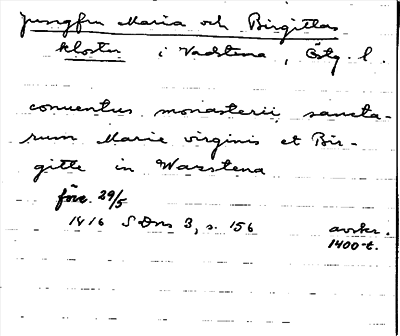 Jungfru Maria och Birgittas
kloster i Vadstena, Östg. l.
conuentus monasterii sancta-
rum Marie virginis et Bir-
gitte in Wazstena
före 29/5
1416 SDns 3, s. 156 avskr.
1400-t.